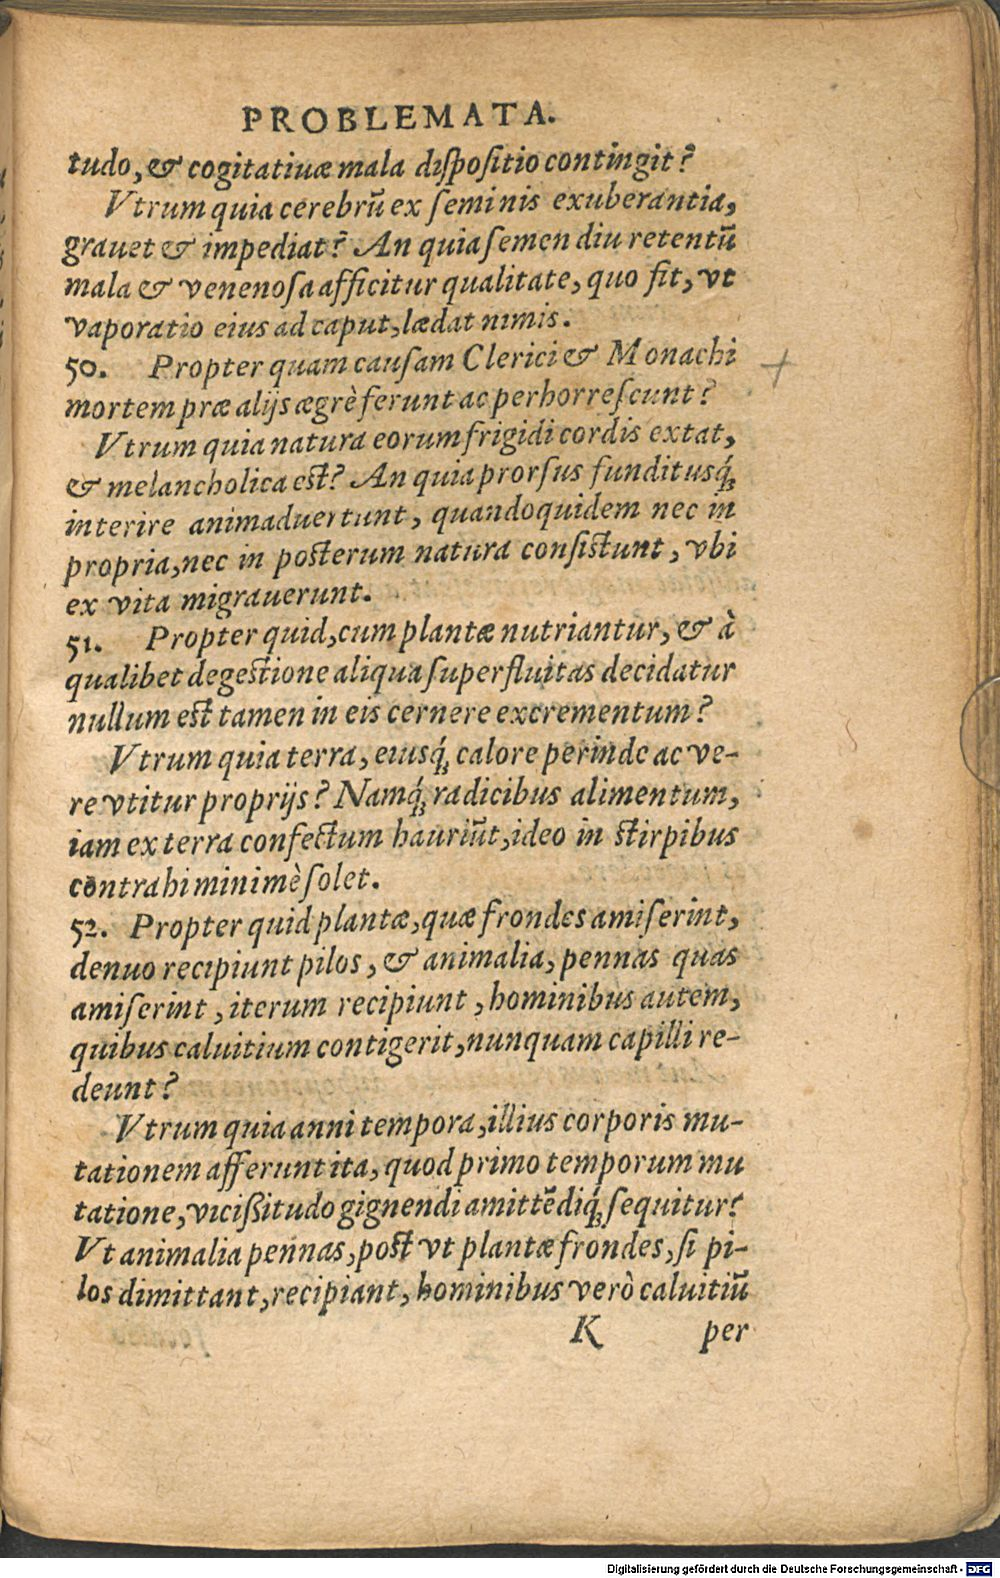 PROBLEMATA.
tudo, & cogitatiuæ mala dispositio contingit?
Vtrum quia cerebrū ex seminis exuberantia,
grauet & impediat? An quia semen diu retentū
mala & venenosa afficitur qualitate, quo fit, vt
vaporatio eius ad caput, lædat nimis.
50. Propter quam causam Clerici & Monachi
mortem præ alijs ægrè ferunt ac perhorrescunt?
Vtrum quia natura eorum frigidi cordis extat,
& melancholica est? An quia prorsus funditusq́;
interire animaduertunt, quandoquidem nec in
propria, nec in posterum natura consistunt, vbi
ex vita migrauerunt.
51. Propter quid, cum plantæ nutriantur, & à
qualibet degestione aliqua superfluitas decidatur
nullum est tamen in eis cernere excrementum?
Vtrum quia terra, eiusq́; calore perinde ac ve-
re vtitur proprijs? Namq́; radicibus alimentum,
iam ex terra confectum hauriūt, ideo in stirpibus
contrahi minimè solet.
52. Propter quid plantæ, quæ frondes amiserint,
denuo recipiunt pilos, & animalia, pennas quas
amiserint, iterum recipiunt, hominibus autem,
quibus caluitium contigerit, nunquam capilli re-
deunt?
Vtrum quia anni tempora, illius corporis mu-
tationem afferunt ita, quod primo temporum mu
tatione, vicißitudo gignendi amittēdiq́; sequitur?
Vt animalia pennas, post vt plantæ frondes, si pi-
los dimittant, recipiant, hominibus verò caluitiū
K per
Digitalisierung gefördert durch die Deutsche Forschungsgemeinschaft - DFG